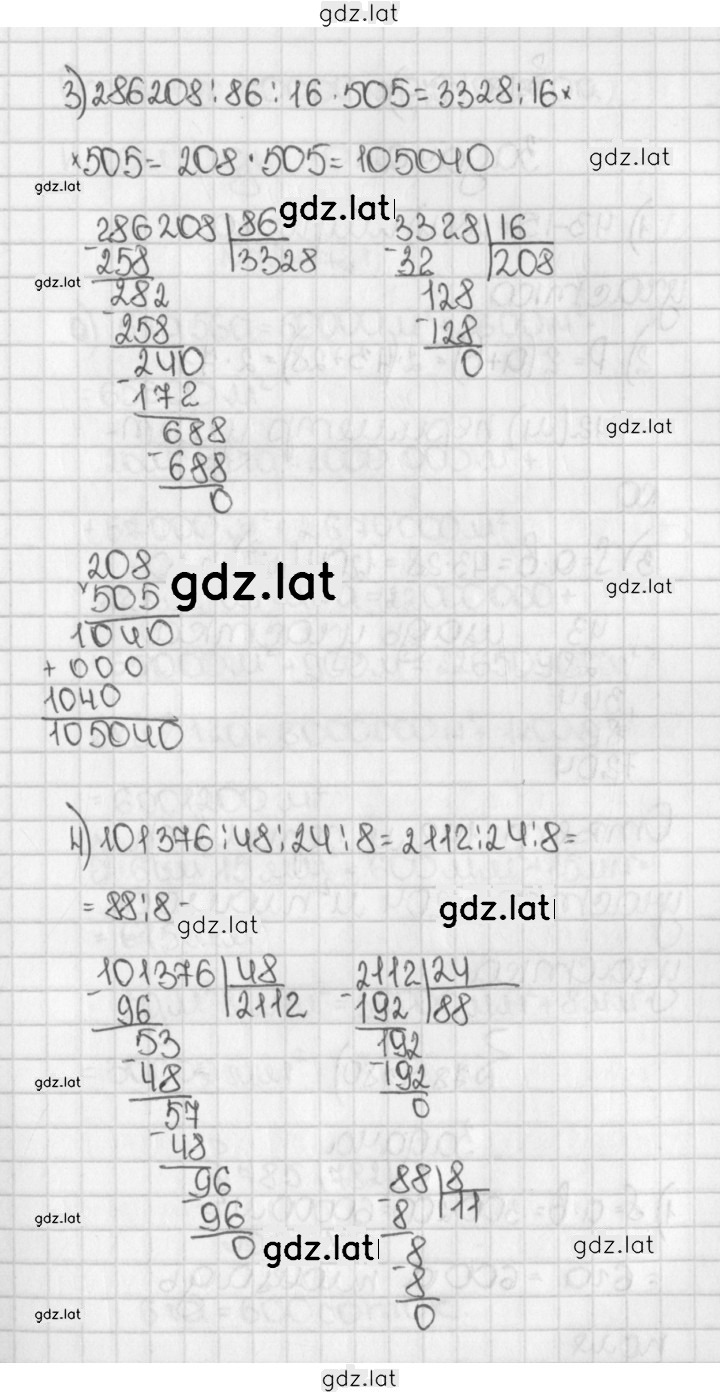 gdz.lat
3) 286208 : 86 : 16 · 505 = 3328 : 16 ×
× 505 = 208 · 505 = 105040
gdz.lat
gdz.lat
gdz.lat
286208 | 86
- 258 | 3328
282
- 258
240
- 172
688
- 688
0
gdz.lat
3328 | 16
- 32 | 208
128
- 128
0
gdz.lat
208
× 505
1040
+ 000
1040
105040
gdz.lat
gdz.lat
4) 101376 : 48 : 24 : 8 = 2112 : 24 : 8 =
= 88 : 8 -
gdz.lat
gdz.lat
101376 | 48
- 96 | 2112
53
- 48
57
- 48
96
- 96
0
gdz.lat
2112 | 24
- 192 | 88
192
- 192
0
88 | 8
- 8 | 11
8
- 8
0
gdz.lat
gdz.lat
gdz.lat
gdz.lat
gdz.lat